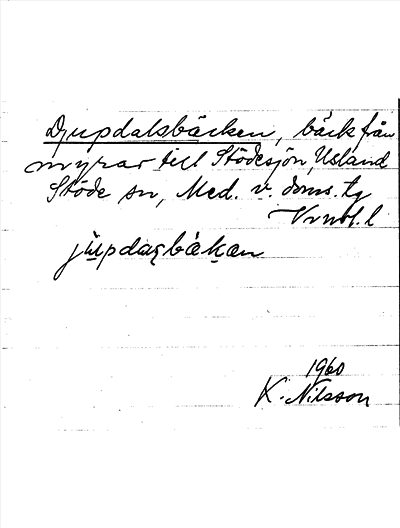 Djupdalsbäcken, bäck från
myrar till Stödesjön, Usland
Stöde sn, Med. v. doms. tg
Vnbt. l
jupdasbäkan
1960
K. Nilsson